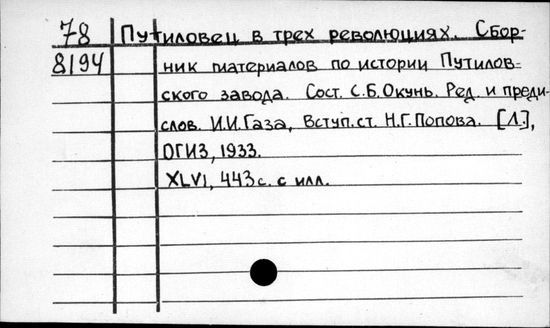 78 Путиловец в трех революциях. Сбор-
8194 ник материалов по истории Путилов-
ского завода. Сост. С.Б.Окунь. Ред. и преди-
слов. И.И.Газа, Вступ.ст. Н.Г.Попова. [Л.],
ОГИЗ, 1933.
XLVI, 443с. с илл.